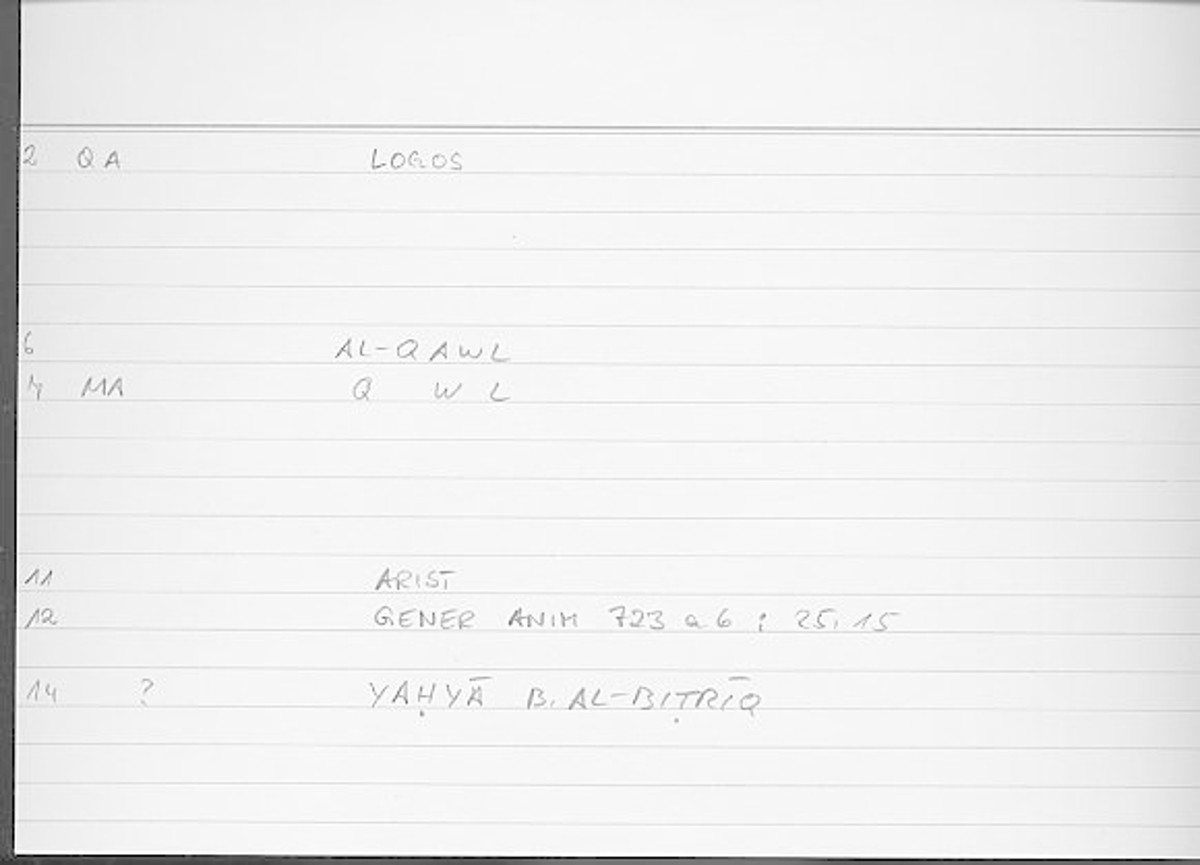 2 QA LOGOS
6 AL-QAWL
4 MA Q W L
11 ARIST
12 GENER ANIM 723 a 6 ; 25,15
14 ? YAḤYĀ B. AL-BIṬRĪQ